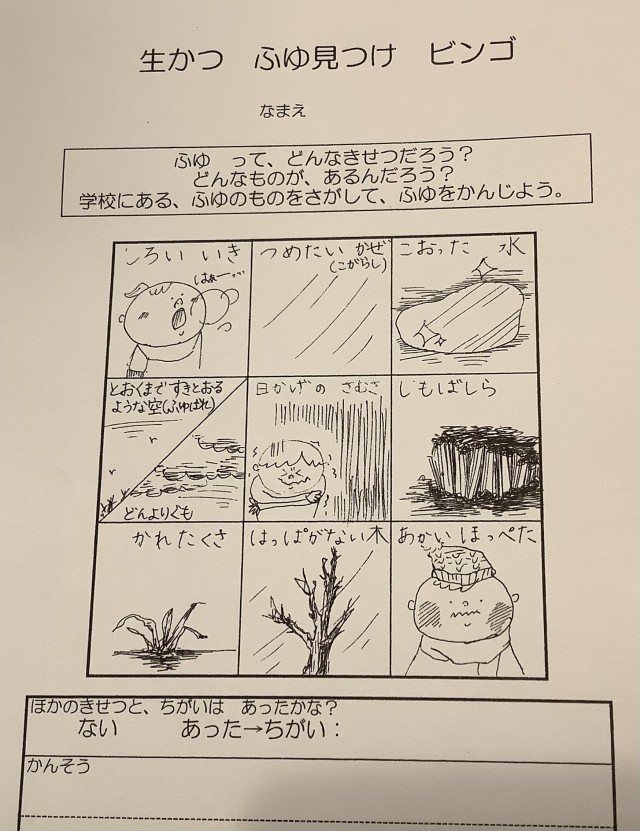 生かつ　ふゆ見つけ　ビンゴ
なまえ
ふゆ　って、どんなきせつだろう？
どんなものが、あるんだろう？
学校にある、ふゆのものをさがして、ふゆをかんじよう。
しろい いき
はぁー…
つめたい かぜ
(こがらし)
こおった 水
とおくまで すきとおる
ような空(ふゆばれ)
どんよりぐも
日かげの さむさ
しもばしら
かれたくさ
はっぱがない木
あかい ほっぺた
ほかのきせつと、ちがいは　あったかな？
ない　あった→ちがい：
かんそう